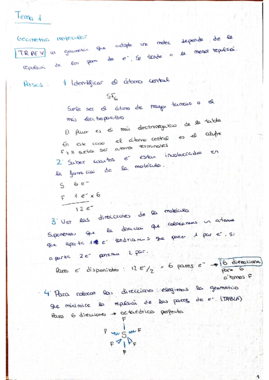 Tema 1
Geometría molecular
T.R.P.E.V La geometría que adopta una molec. depende de la
repulsión de los pares de e⁻. Se tiende a la menor repulsión
Pasos: 1 Identificar el átomo central
SF₆
Suele ser el átomo de mayor tamaño o el
más electropositivo
El flúor es el más electronegativo de la tabla
En este caso el átomo central es el azufre
F = H suelen ser átomos terminales
2 Saber cuantos e⁻ estan involucrados en
la formación de la molécula.
S 6 e⁻
F 1 e⁻ x 6
12 e⁻
3 Ver las direcciones de la molécula
Suponemos que la dirección que colocamos un átomo
que aporta 1 e⁻ tendríamos que poner 1 por e⁻, si
aporta 2 e⁻ ponemos 1 par.
Pares e⁻ disponibles: 12 e⁻/2 = 6 pares e⁻ → 6 direcciones
para 6
átomos F
4 Para colocar las direcciones elegimos la geometría
que minimice la repulsión de los pares de e⁻ (TABLA)
Para 6 direcciones → octaédrica perfecta
F
F F
S
F F
F
1